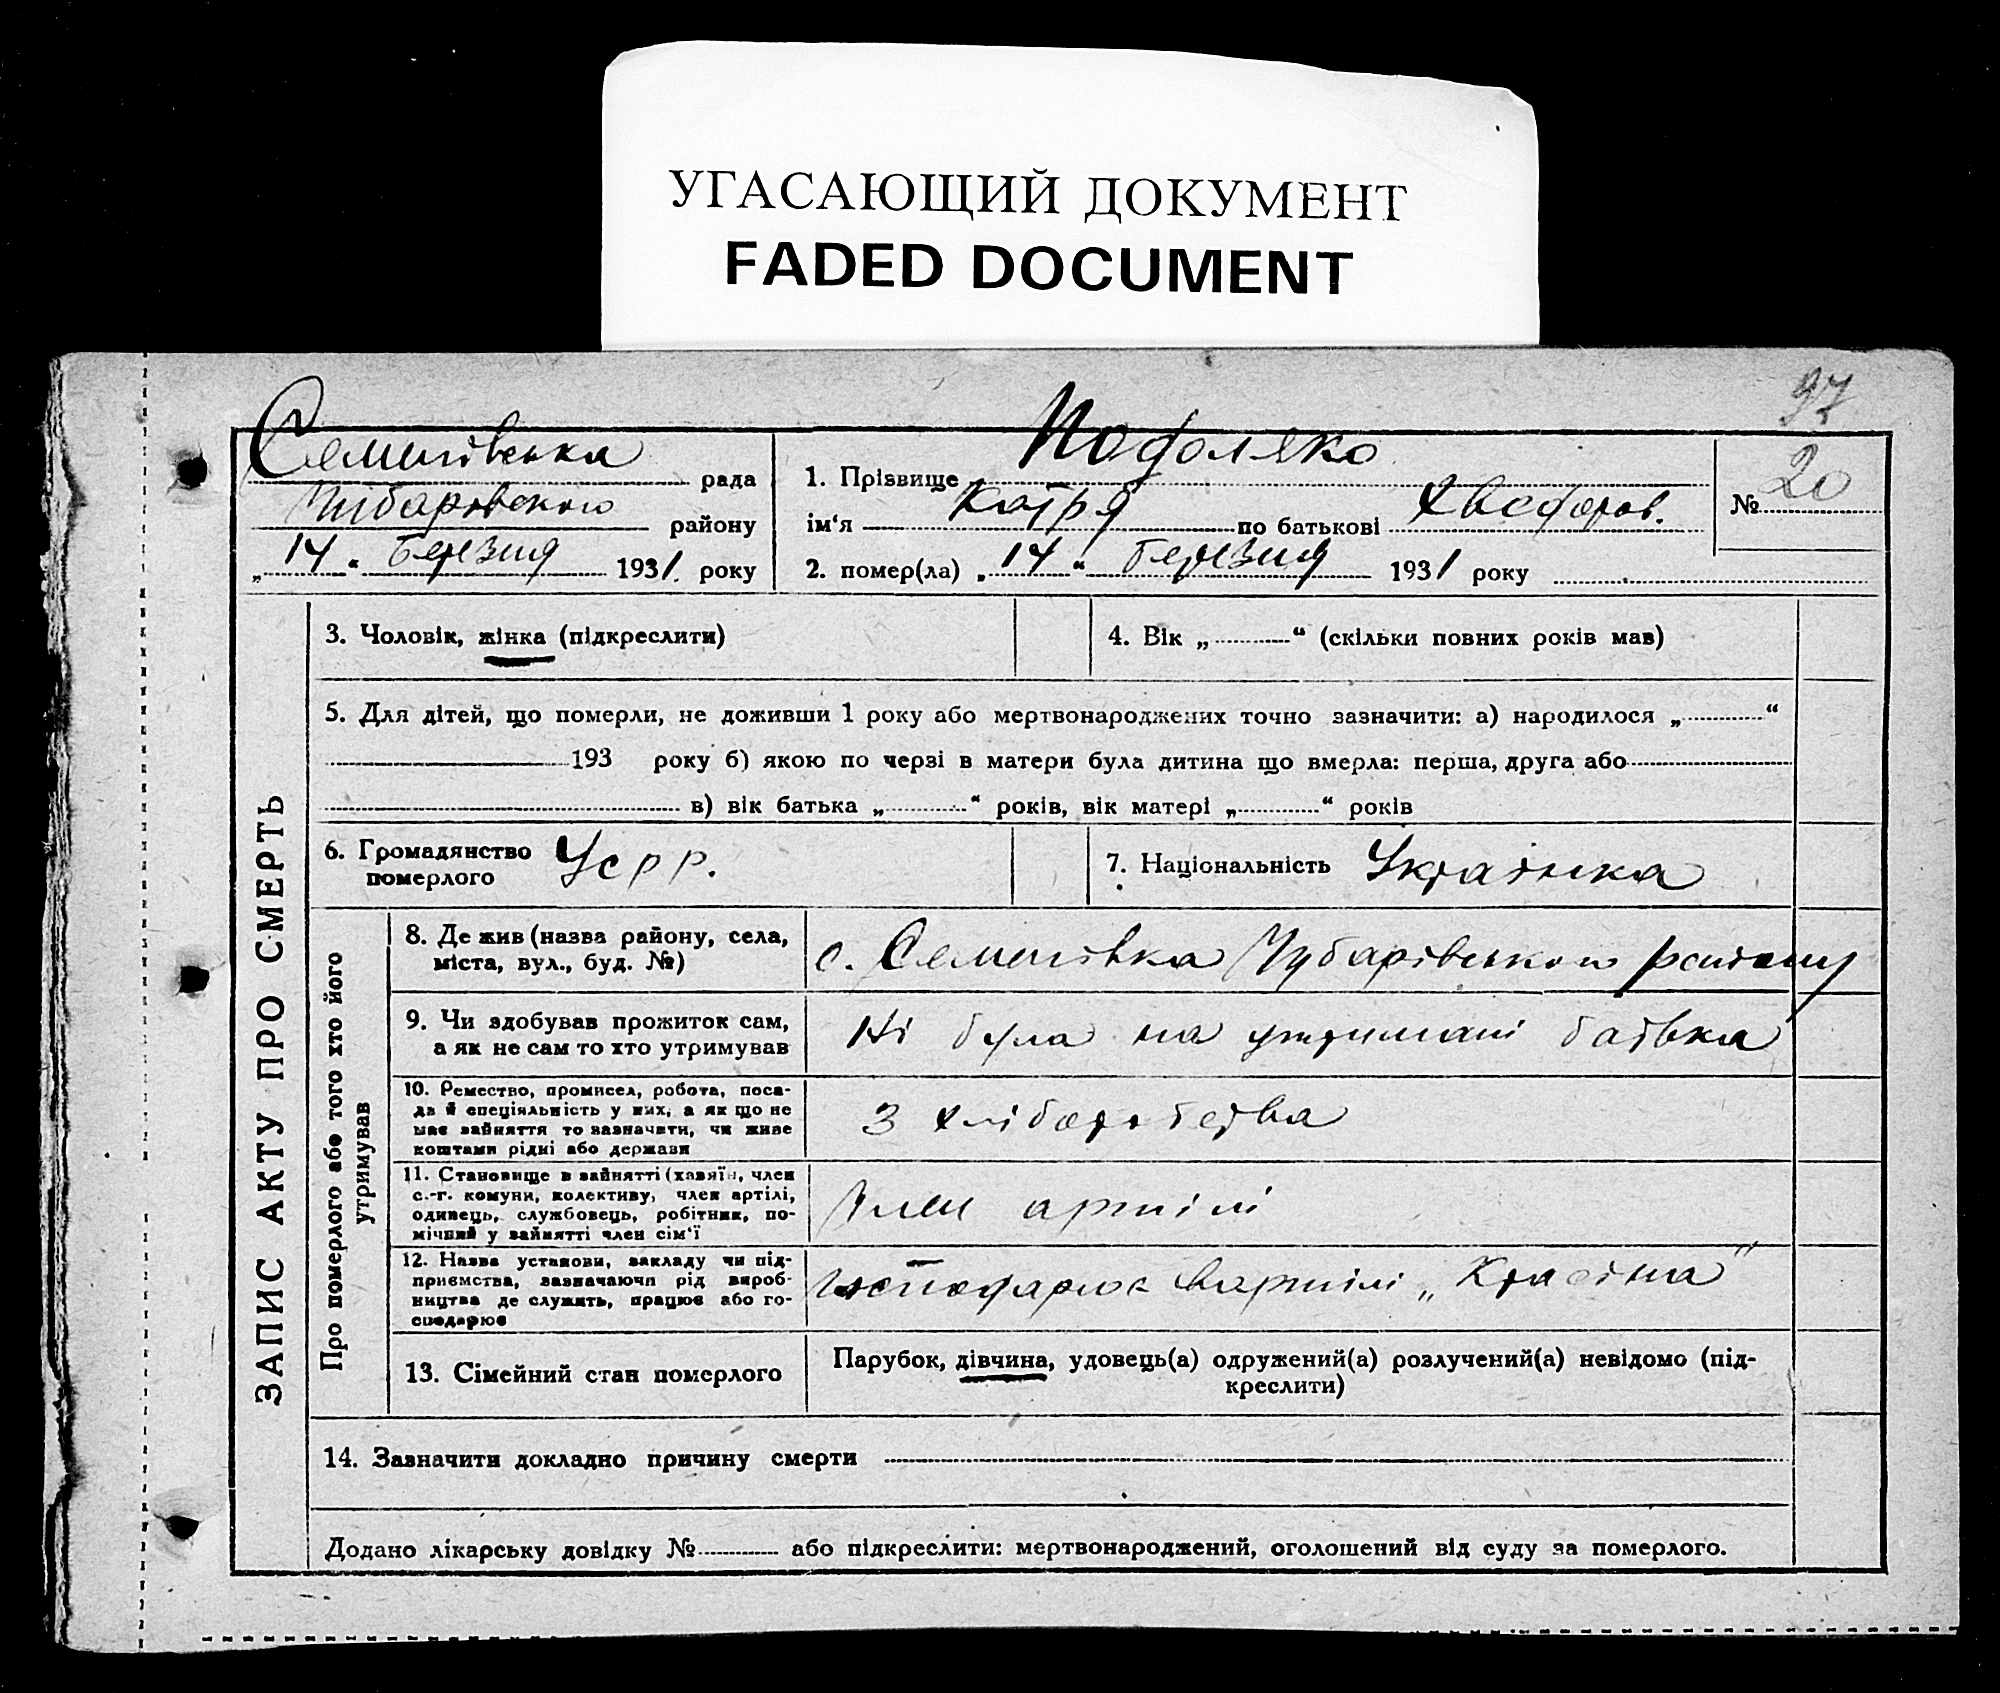 УГАСАЮЩИЙ ДОКУМЕНТ
FADED DOCUMENT
97
Семенівська рада
Чубаровського району
„14“ березня 1931 року
1. Прізвище Подоляко
ім‘я Катря по батькові Хведоров.
№ 20
2. помер(ла) „14“ березня 1931 року
ЗАПИС АКТУ ПРО СМЕРТЬ
3. Чоловік, жінка (підкреслити)
4. Вік „ “ (скільки повних років мав)
5. Для дітей, що померли, не доживши 1 року або мертвонароджених точно зазначити: а) народилося „ “
193 року б) якою по черзі в матери була дитина що вмерла: перша, друга або
в) вік батька „ “ років, вік матері „ “ років
6. Громадянство
померлого
Усрр.
7. Національність Українка
Про померлого або того хто його
утримував
8. Де жив (назва району, села,
міста, вул., буд. №)
с. Семенівка Чубарівського району
9. Чи здобував прожиток сам,
а як не сам то хто утримував
Ні була на утримані батька
10. Ремество, промисел, робота, поса-
да й спеціяльність у них, а як що не
має зайняття то зазначити, чи живе
коштами рідні або держави
З хліборобства
11. Становище в зайнятті (хазяїн, член
с.-г. комуни, колективу, член артілі,
одинець, службовець, робітник, по-
мічний у зайнятті член сім‘ї
Член артілі
12. Назва установи, закладу чи під-
приємства, зазначаючи рід вироб-
ництва де служить, працює або го-
сподарює
господарює в артілі „Країна“
13. Сімейний стан померлого
Парубок, дівчина, удовець(а) одружений(а) розлучений(а) невідомо (під-
креслити)
14. Зазначити докладно причину смерти
Додано лікарську довідку № або підкреслити: мертвонароджений, оголошений від суду за померлого.